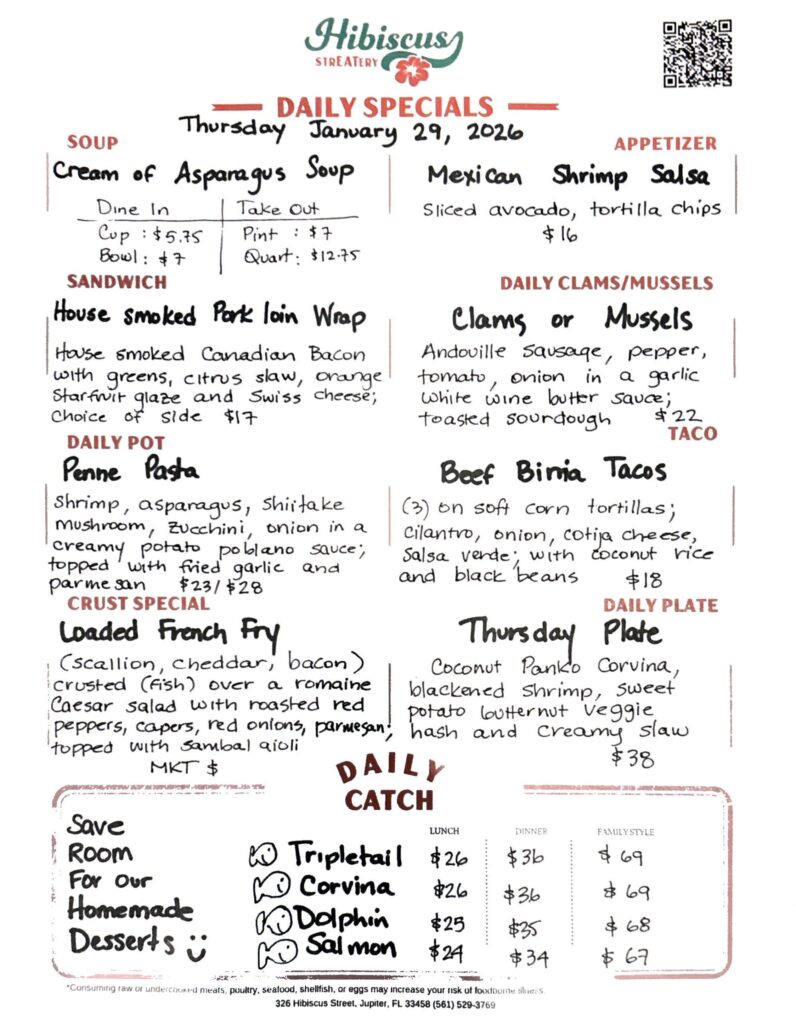 Hibiscus
STREATERY
DAILY SPECIALS
Thursday January 29, 2026
SOUP
Cream of Asparagus Soup
Dine In Take Out
Cup : $5.75 Pint : $7
Bowl : $7 Quart : $12.75
APPETIZER
Mexican Shrimp Salsa
Sliced avocado, tortilla chips
$16
SANDWICH
House smoked Pork loin Wrap
House smoked Canadian Bacon
with greens, citrus slaw, orange
Starfruit glaze and Swiss cheese;
Choice of side $17
DAILY CLAMS/MUSSELS
Clams or Mussels
Andouille sausage, pepper,
tomato, onion in a garlic
white wine butter sauce;
toasted sourdough $22
DAILY POT
Penne Pasta
Shrimp, asparagus, shiitake
mushroom, zucchini, onion in a
creamy potato poblano sauce;
topped with fried garlic and
parmesan $23/$28
TACO
Beef Birria Tacos
(3) on soft corn tortillas;
cilantro, onion, cotija cheese,
salsa verde; with coconut rice
and black beans $18
CRUST SPECIAL
Loaded French Fry
(scallion, cheddar, bacon)
crusted (fish) over a romaine
Caesar salad with roasted red
peppers, capers, red onions, parmesan;
topped with sambal aioli
MKT $
DAILY PLATE
Thursday Plate
Coconut Panko Corvina,
blackened shrimp, sweet
potato butternut veggie
hash and creamy slaw
$38
DAILY
CATCH
Save
Room
For our
Homemade
Desserts
LUNCH DINNER FAMILY STYLE
Tripletail $26 $36 $69
Corvina $26 $36 $69
Dolphin $25 $35 $68
Salmon $24 $34 $67
*Consuming raw or undercooked meats, poultry, seafood, shellfish, or eggs may increase your risk of foodborne illness.
326 Hibiscus Street, Jupiter, FL 33458 (561) 529-3769